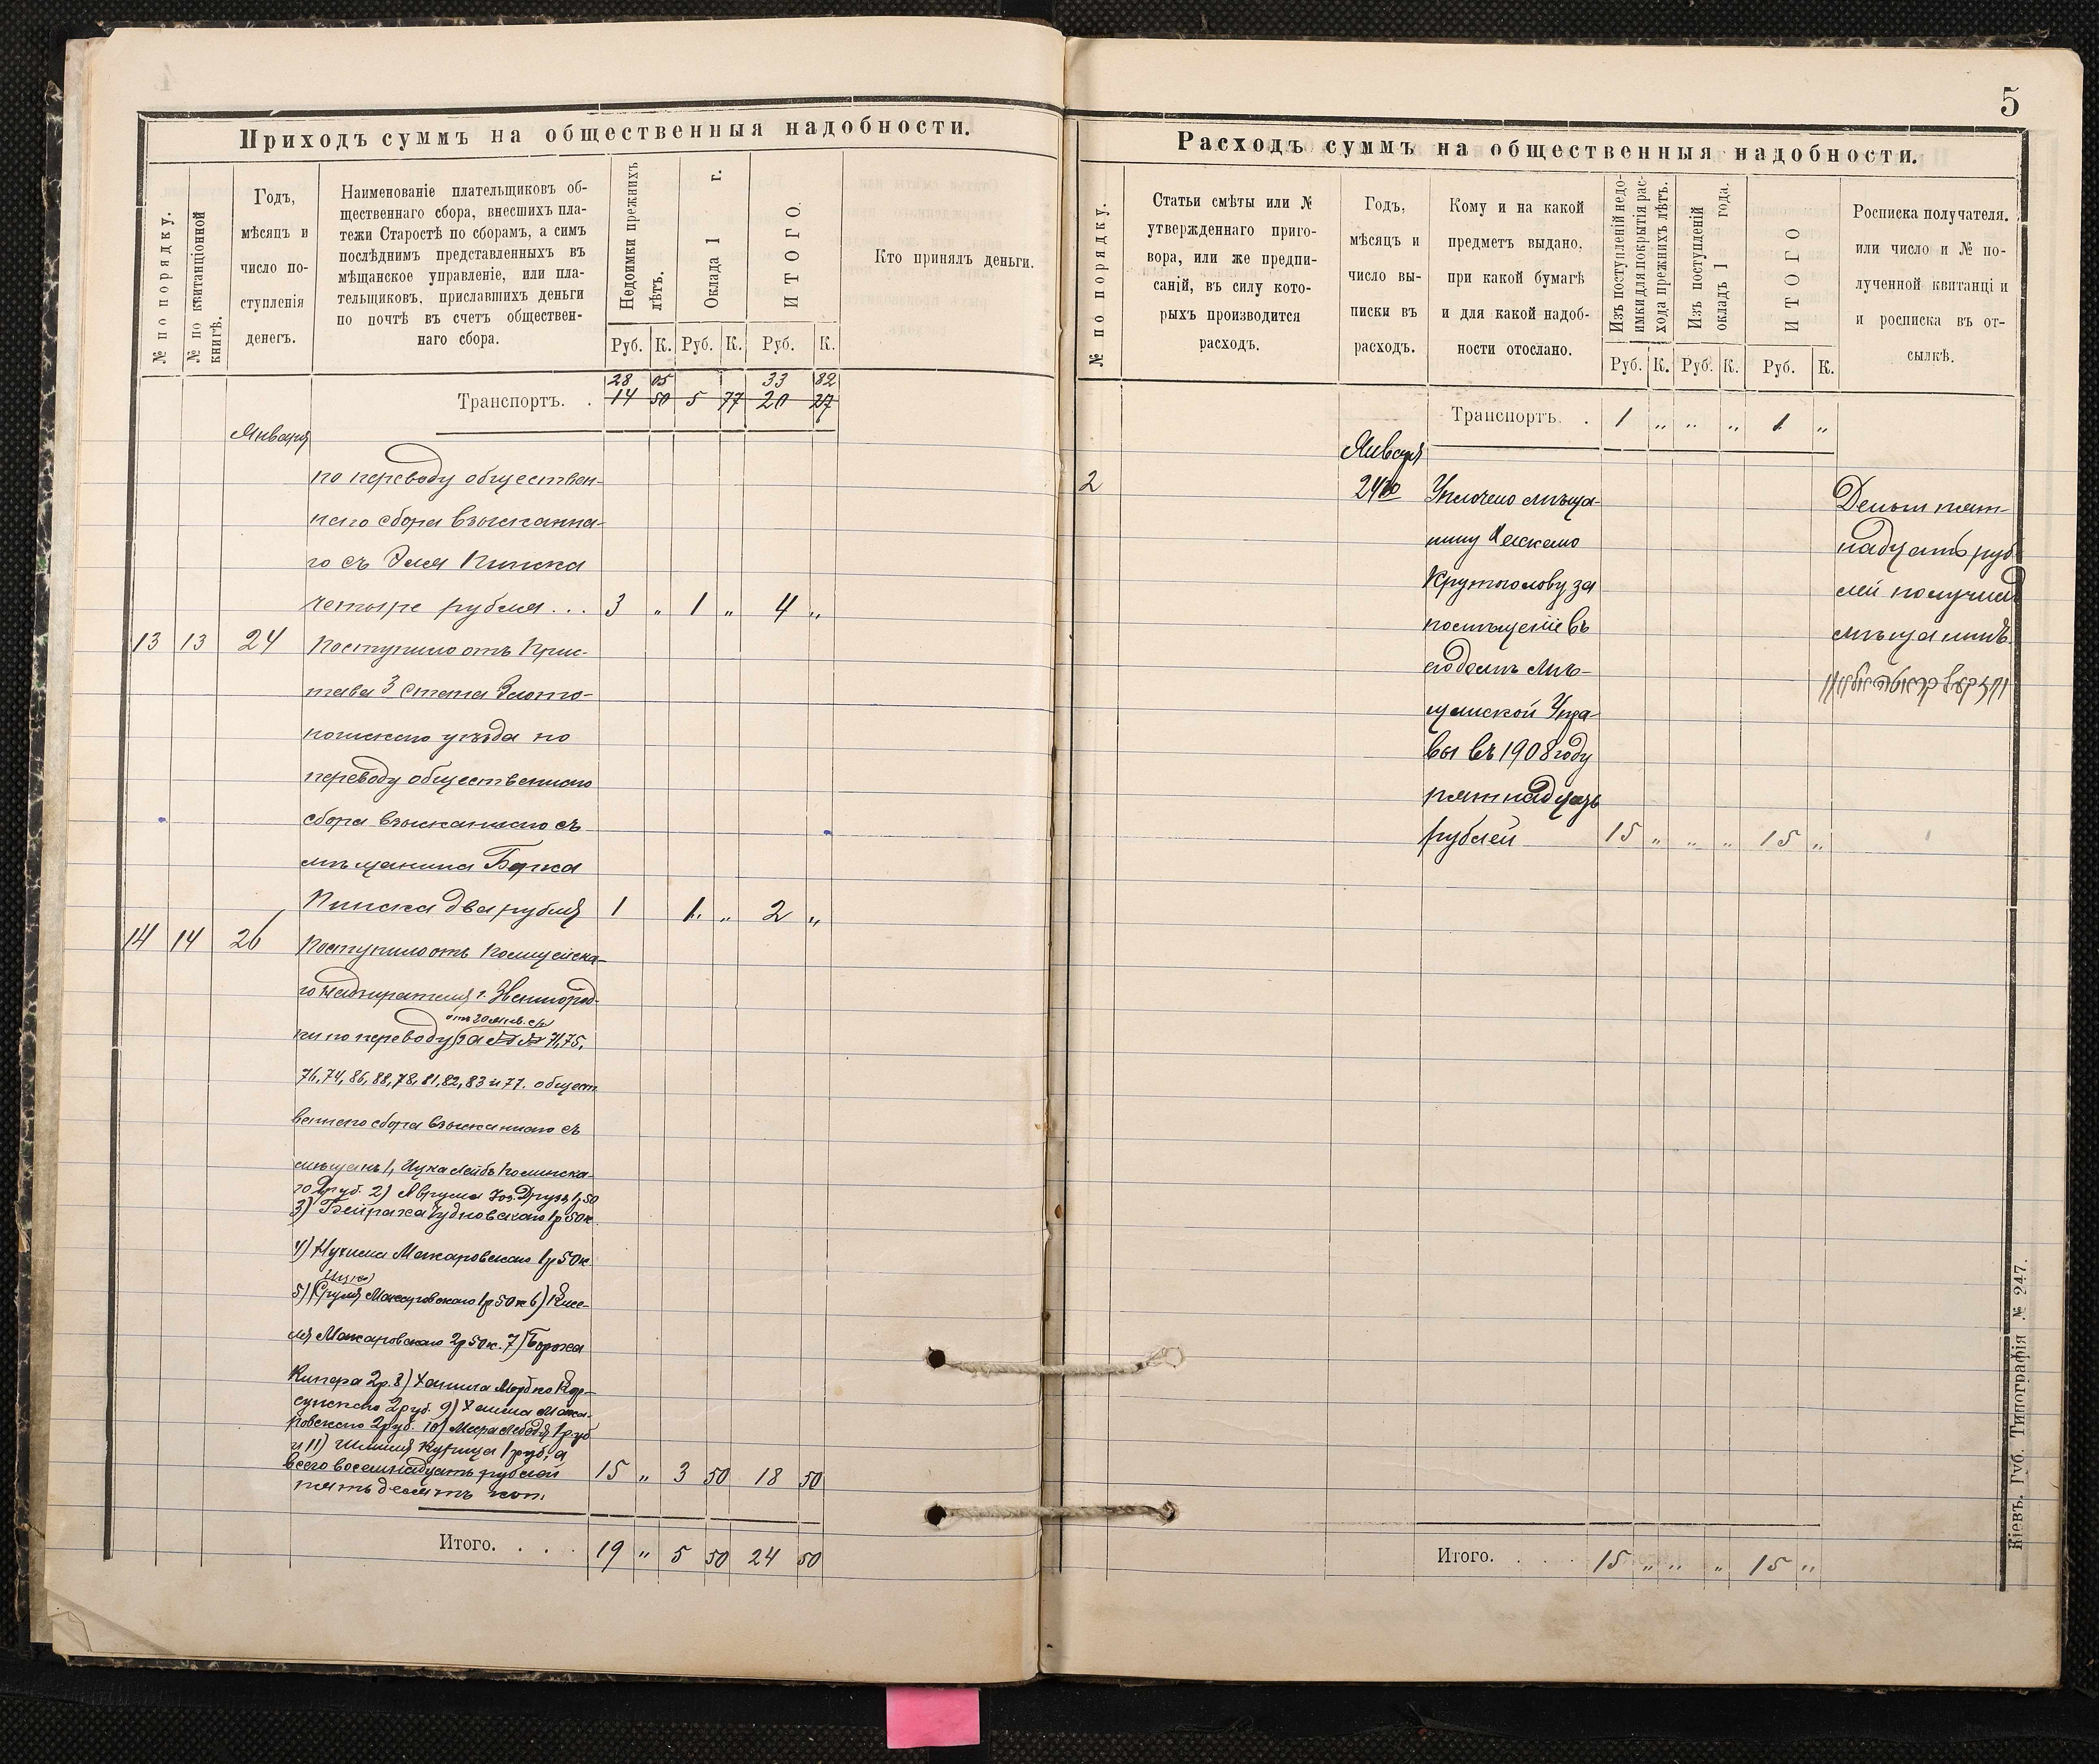 Приходъ суммъ на общественныя надобности.
№ по порядку.
№ по квитанціонной книгѣ.
Годъ,
мѣсяцъ и
число по-
ступленія
денегъ.
Наименованіе плательщиковъ об-
щественнаго сбора, внесшихъ пла-
тежи Старостѣ по сборамъ, а симъ
послѣднимъ представленныхъ въ
мѣщанское управленіе, или пла-
тельщиковъ, приславшихъ деньги
по почтѣ въ счетъ обществен-
наго сбора.
Недоимки прежнихъ лѣтъ.
Оклада 1 г.
ИТОГО.
Руб. К. Руб. К. Руб. К.
Кто принялъ деньги.
28 05 33 82
Транспортъ. . 14 50 5 77 20 27
Января
по переводу обществен-
наго сбора взысканна-
го съ Эля Пинска
четыре рубля... 3 „ 1 „ 4 „
13 13 24 Поступило отъ Прис-
тава 3 стана Злото-
пошскаго уѣзда по
переводу общественнаго
сбора взысканнаго съ
мѣщанина Борка
Пинска два рубля 1 1 „ 2 „
14 14 26 Поступило отъ Полицейска-
го надзирателя г. Звенигород-
отъ 20 янв. с/г
ки по переводу за №№ 71, 75,
76, 74, 86, 88, 78, 81, 82, 83 и 77. общест
веннаго сбора взысканнаго съ
мѣщанъ 1, Ицка Лейбъ Полинска-
го 2 руб. 2) Аврума 1, 50
3) Чудновскаго 1р 50к
4) Нухима Макаровскаго 1р 50к
5) Сруля Макаровскаго 1р 50к 6) Кисе-
ля Макаровскаго 2р 50к. 7) Борка
Кипера 2р. 8) Хаима Мордко Кор-
сунскаго 2 руб. 9) Хаима Мака-
ровскаго 2 руб. 10) Меера Лебедя 1 руб
и 11) Шмиля Курица 1 руб, а
всего восемнадцать рублей 15 „ 3 50 18 50
пятьдесятъ коп.
Итого. . . . 19 „ 5 50 24 50
5
Расходъ суммъ на общественныя надобности.
№ по порядку.
Статьи смѣты или №
утвержденнаго приго-
вора, или же предпи-
саній, въ силу кото-
рыхъ производится
расходъ.
Годъ,
мѣсяцъ и
число вы-
писки въ
расходъ.
Кому и на какой
предметъ выдано,
при какой бумагѣ
и для какой надоб-
ности отослано.
Изъ поступленій недо-
имки для покрытія рас-
хода прежнихъ лѣтъ.
Изъ поступленій
окладъ 1 года.
ИТОГО
Руб. К. Руб. К. Руб. К.
Росписка получателя.
или число и № по-
лученной квитанці и
и росписка въ от-
сылкѣ.
Транспортъ. . 1 „ „ „ 1 „
Января
2 24го Уплочено мѣща-
нину
Крутоголову за
помѣщеніе въ
мѣ-
щанской Упра-
вы въ 1908 году
пятнадцать
рублей 15 „ „ „ 15 „
Деньги пят-
надцать руб
лей получилъ
мѣщанинъ
Итого. . . . 15 „ „ „ 15 „
Кіевъ. Губ. Типографія № 247.